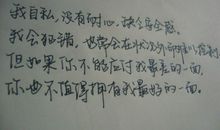 我自私,没有耐心,缺乏安全感。
我会犯错,也常会在状况外
但如果你不能应付我最差的一面,
你也不值得拥有我最好的一面。